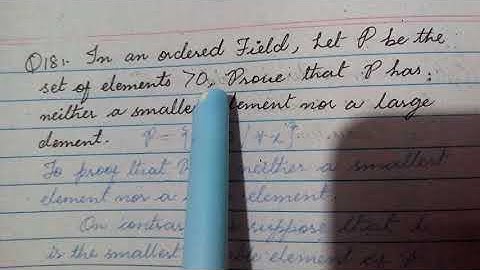 Q18:- In an ordered Field, Let P be the
set of elements >0, Prove that P has
neither a smallest element nor a large
element.
To proof that P neither a smallest
element nor a element.
On contrary suppose that
is the smallest element of P